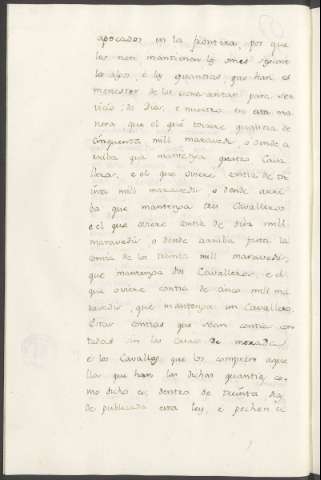 apocados en la frontera, por que
les non mantienen los omes segunt
los algos, e las quantias que han es
menester de les acrecentar para ser
vicio de Dios, e nuestro en esta ma
nera que el que toviere quantia de
cinquenta mil maravedis o dende a
rriba que mantenga quatro Cava
lleros, e el que oviere contia de tre
inta mil maravedis o dende arri
ba que mantenga tres Cavalleros
e el que oviere contia de diez mil
maravedis, o dende arriba fasta la
contia de los treinta mil maravedis,
que mantenga dos Cavalleros, e el
que oviere contia de cinco mil ma
ravedis, que mantenga un Cavallero.
Estas contias que sean contia con
tadas sin las casas de morada,
e los Cavallos que los compren aque
llos que han las dichas quantias, co
mo dicho es, dentro de treinta dias
de publicada esta ley, e pechen el